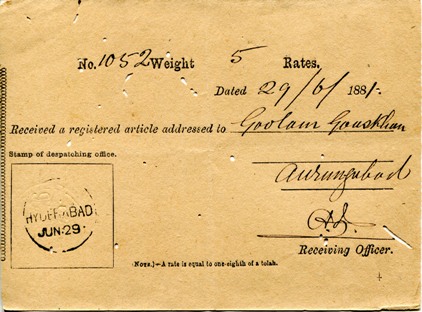 No. 1052 Weight 5 Rates.
Dated 29/6/1881.
Received a registered article addressed to Goolam Gouskhan
Stamp of despatching office.
Aurungabad
HYDERABAD
JUN·29
Receiving Officer.
(NOTE.)—A rate is equal to one-eighth of a tolah.